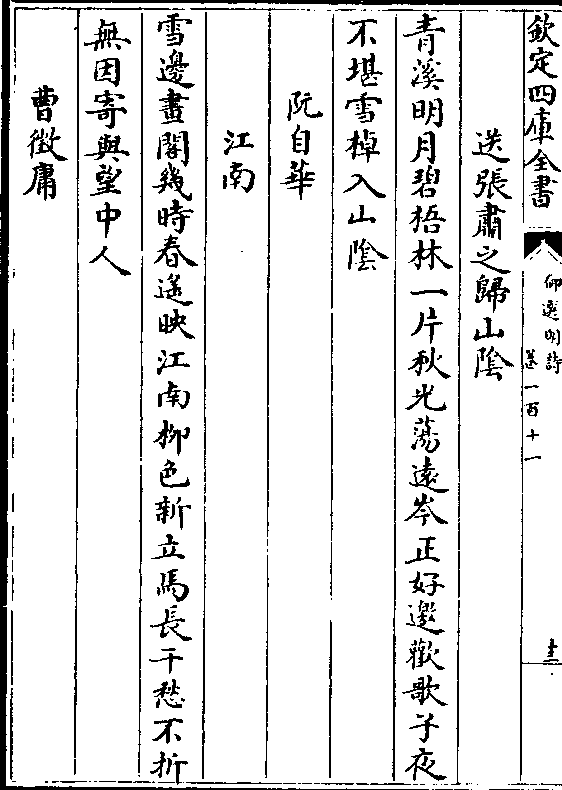 欽定四庫全書
御選明詩
卷一百十一
十三
送張肅之歸山陰
青溪明月碧梧林一片秋光蕩遠岑正好邀歡歌子夜
不堪雪棹入山陰
阮自華
江南
雪邊畫閣幾時春遙映江南柳色新立馬長干愁不折
無因寄與望中人
曹徵庸